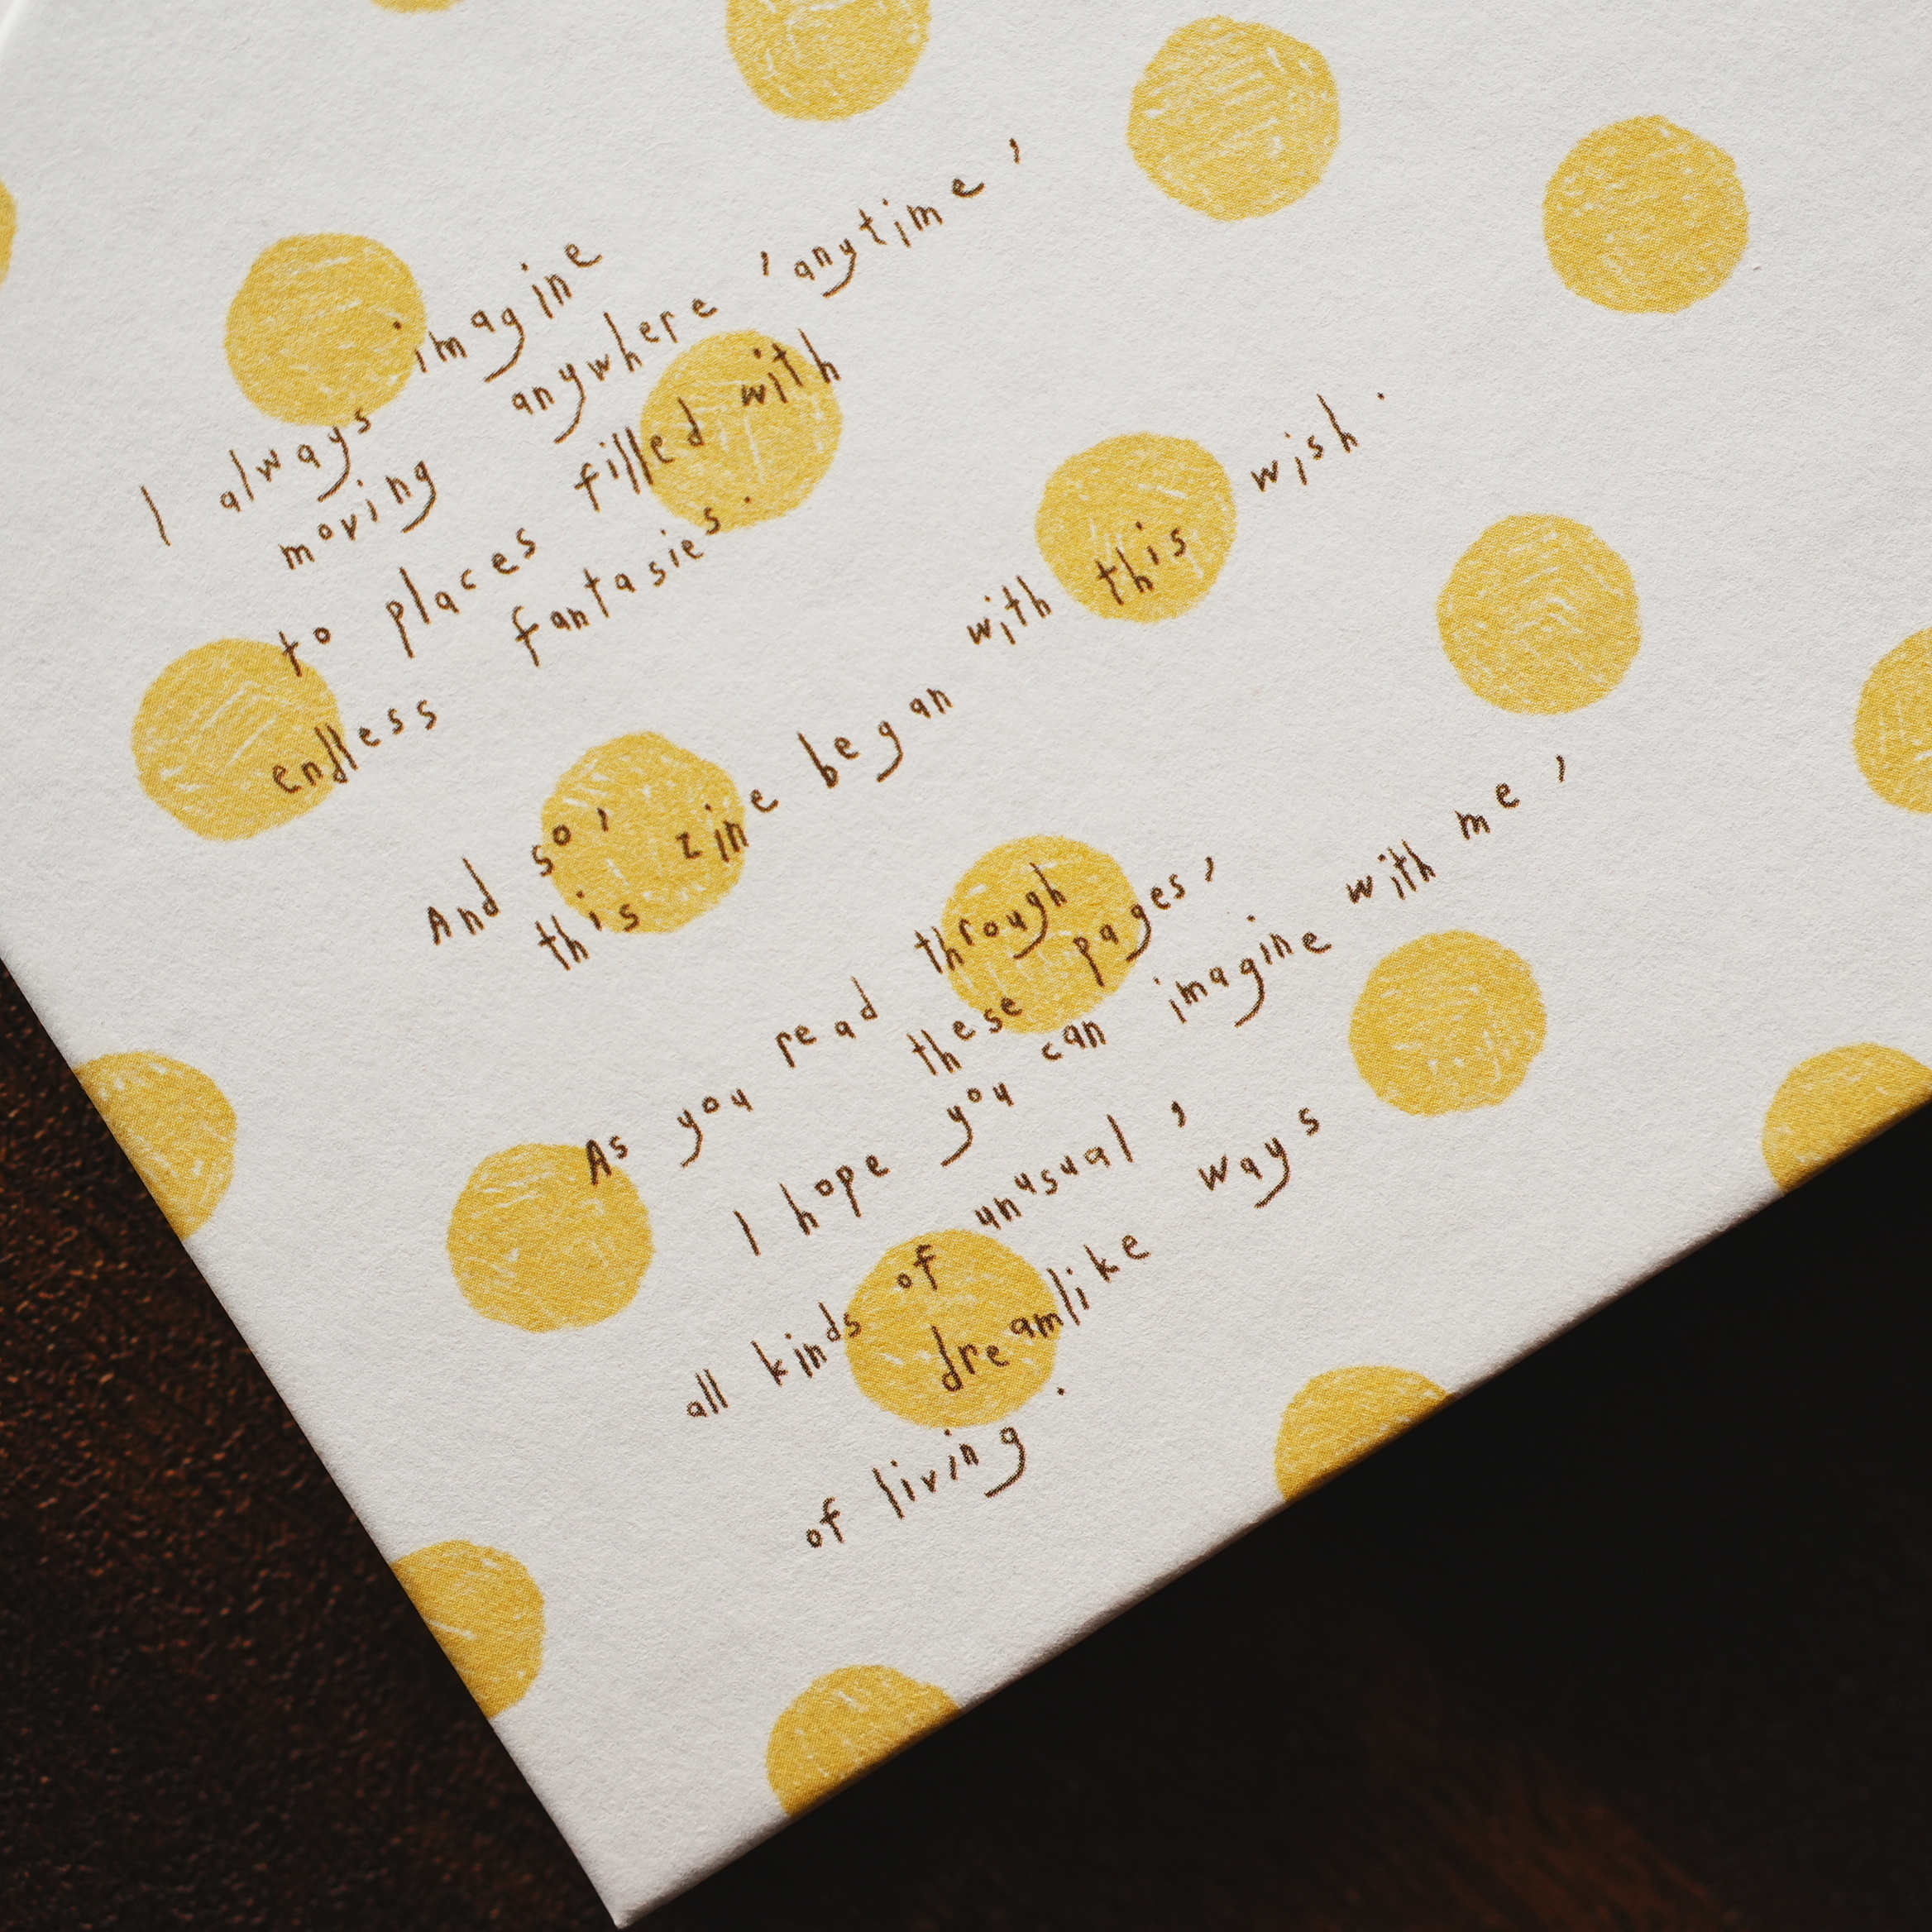 I always imagine
moving anywhere, anytime,
to places filled with
endless fantasies.
And so,
this zine began with this wish.
As you read through
these pages,
I hope you can imagine with me,
all kinds of unusual,
dreamlike ways
of living.